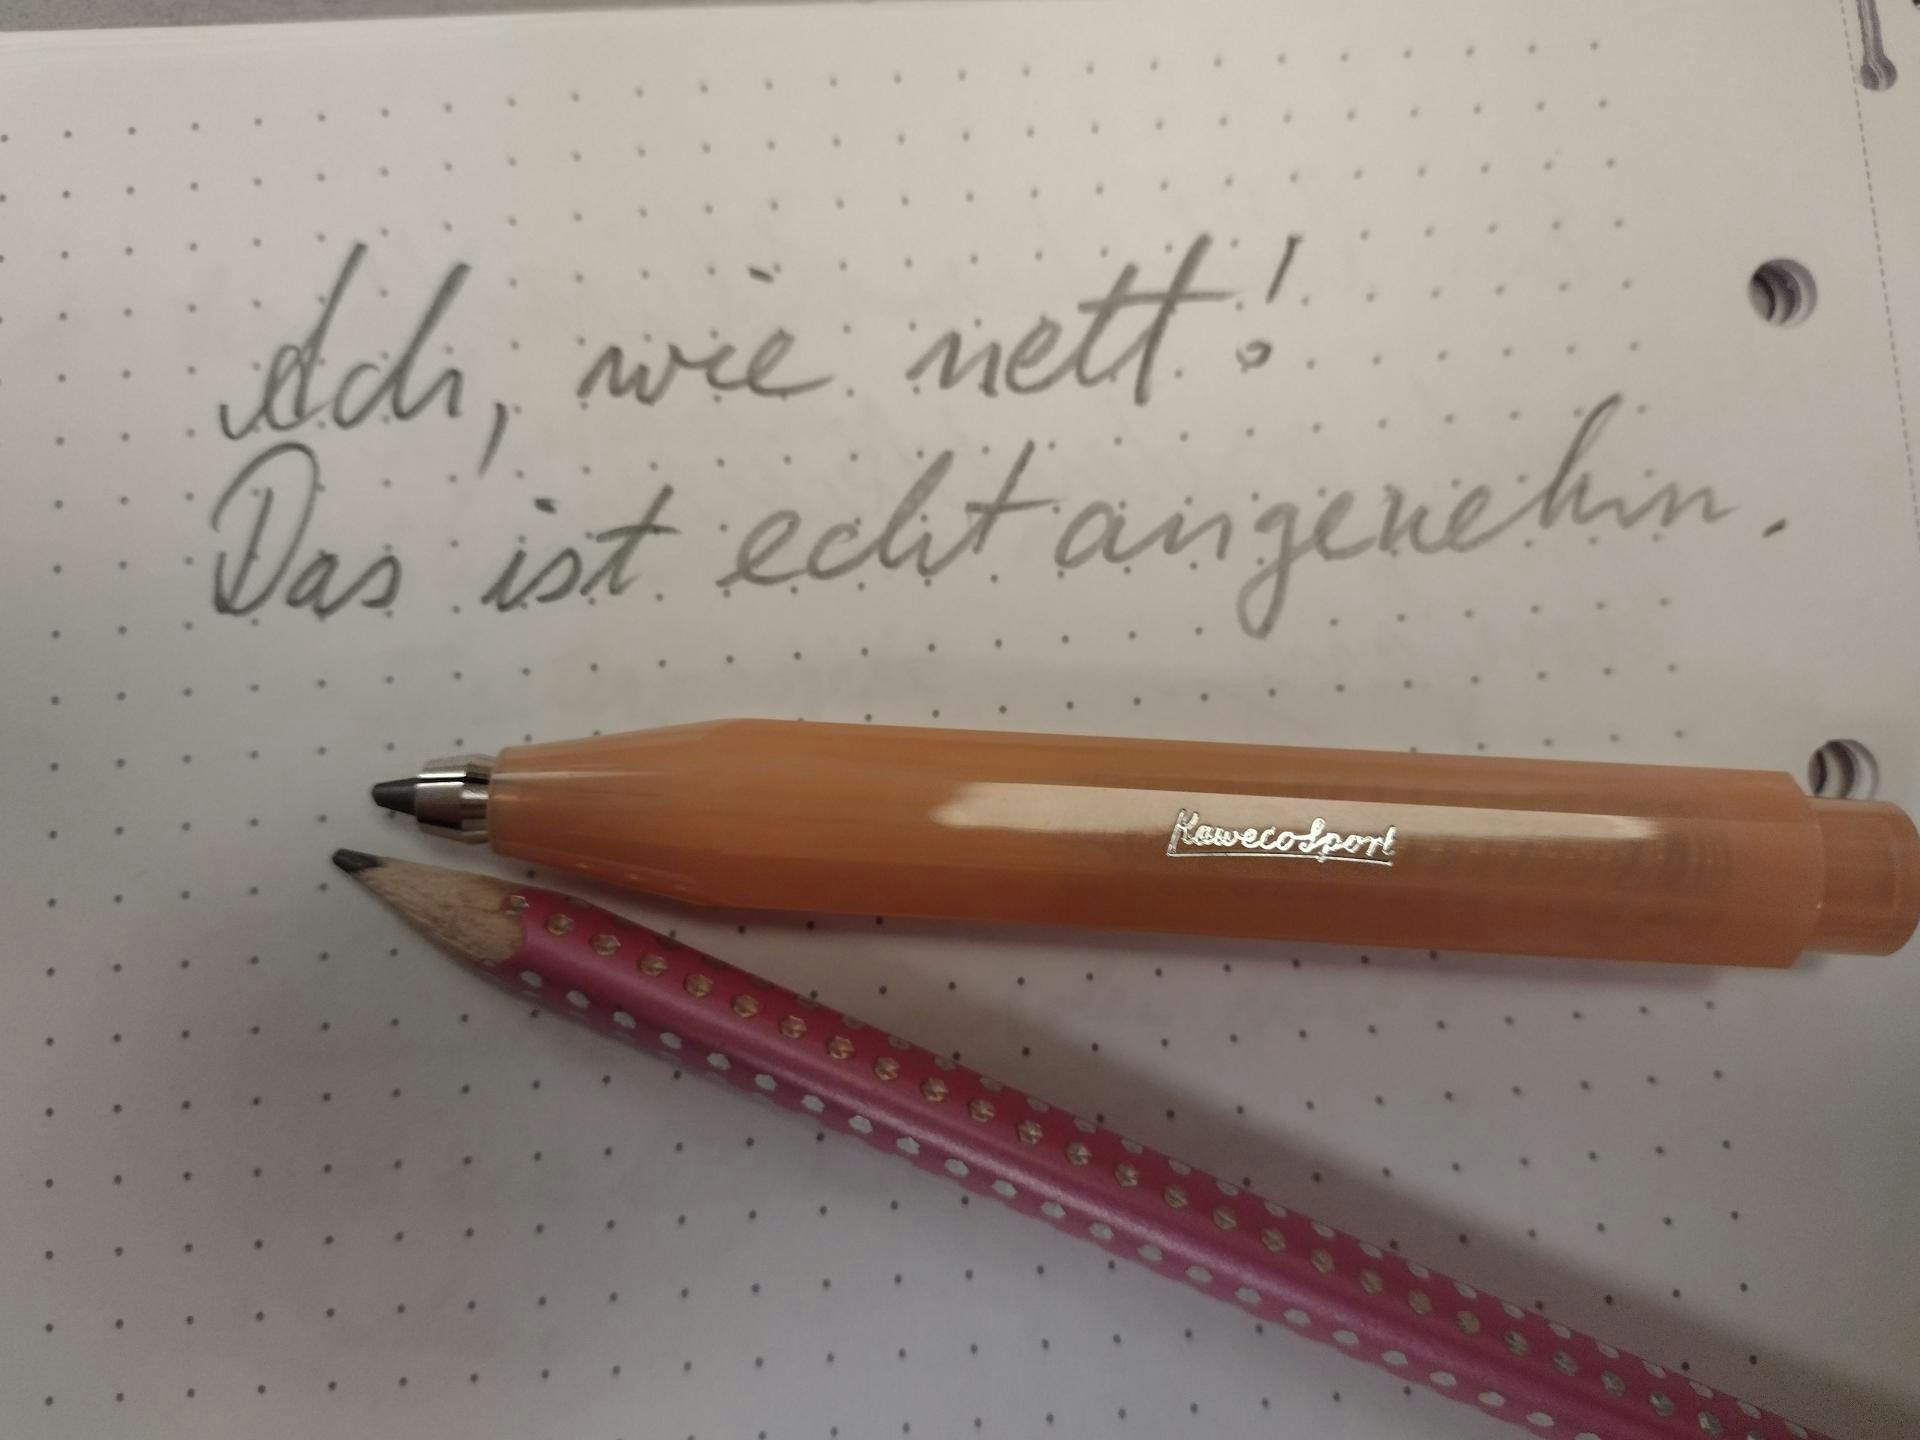 Ach, wie nett!
Das ist echt angenehm.
Kaweco Sport